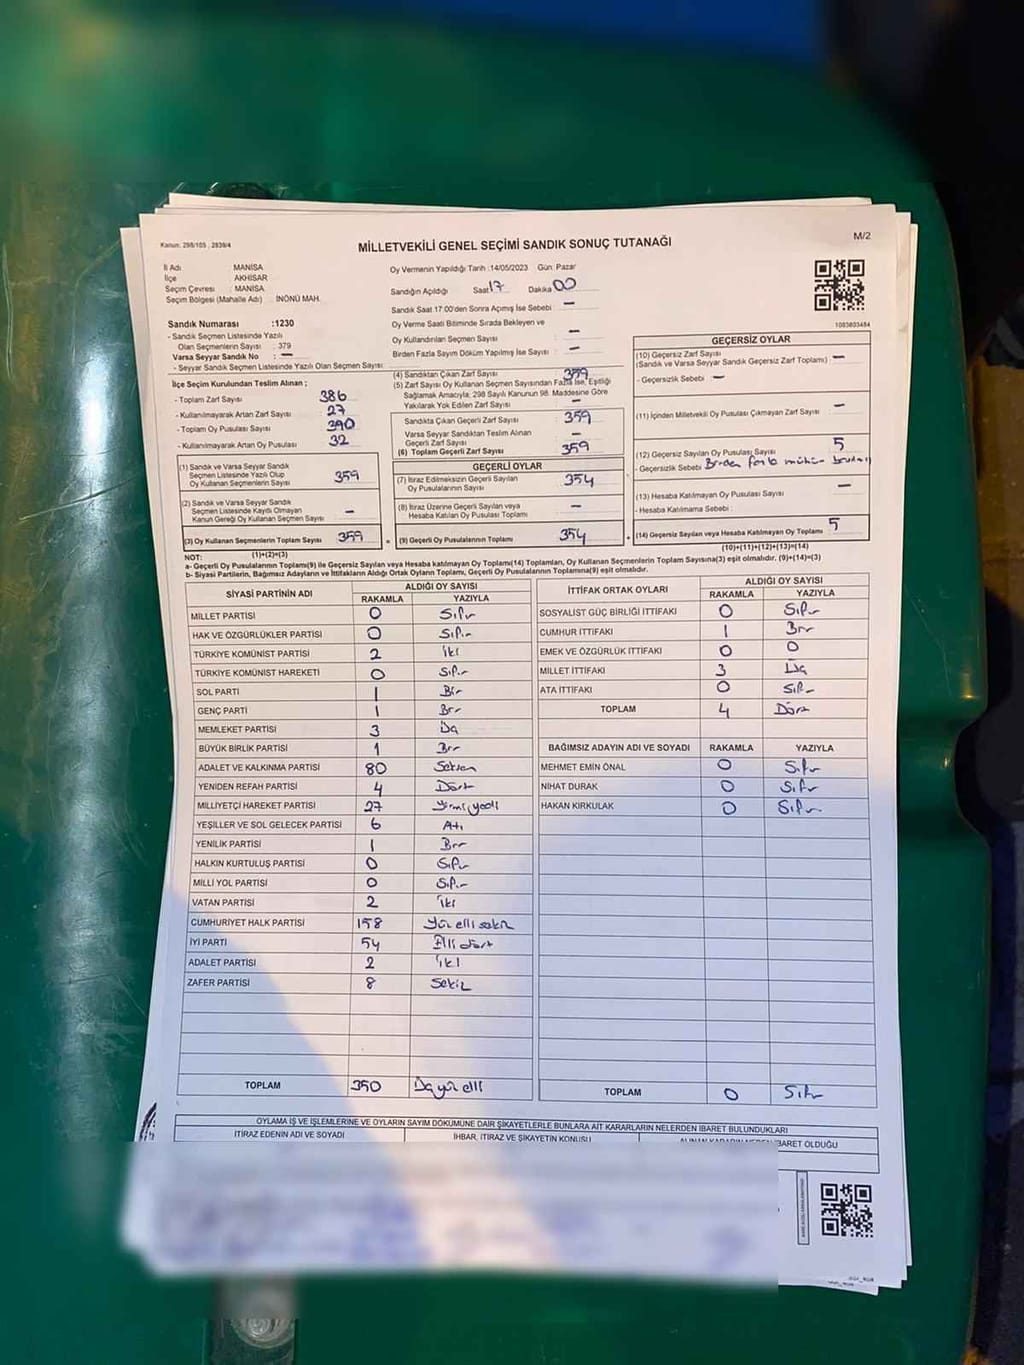 Kanun: 298/105 , 2839/4
MİLLETVEKİLİ GENEL SEÇİMİ SANDIK SONUÇ TUTANAĞI
M/2
İl Adı MANİSA
İlçe AKHİSAR
Seçim Çevresi : MANİSA
Seçim Bölgesi (Mahalle Adı) : İNÖNÜ MAH.
Oy Vermenin Yapıldığı Tarih :14/05/2023 Gün: Pazar
Sandığın Açıldığı Saat 17 Dakika 00
Sandık Saat 17:00'den Sonra Açılmış İse Sebebi : –
Oy Verme Saati Bitiminde Sırada Bekleyen ve
Oy Kullandırılan Seçmen Sayısı –
Birden Fazla Sayım Döküm Yapılmış İse Sayısı : –
1083803484
Sandık Numarası :1230
- Sandık Seçmen Listesinde Yazılı
Olan Seçmenlerin Sayısı : 379
Varsa Seyyar Sandık No : –
- Seyyar Sandık Seçmen Listesinde Yazılı Olan Seçmen Sayısı:
İlçe Seçim Kurulundan Teslim Alınan ;
- Toplam Zarf Sayısı 386
- Kullanılmayarak Artan Zarf Sayısı : 27
- Toplam Oy Pusulası Sayısı : 390
- Kullanılmayarak Artan Oy Pusulası 32
(1) Sandık ve Varsa Seyyar Sandık
Seçmen Listesinde Yazılı Olup
Oy Kullanan Seçmenlerin Sayısı 359
(2) Sandık ve Varsa Seyyar Sandık
Seçmen Listesinde Kayıtlı Olmayan
Kanun Gereği Oy Kullanan Seçmen Sayısı –
(3) Oy Kullanan Seçmenlerin Toplam Sayısı 359
(1)+(2)=(3)
(4) Sandıktan Çıkan Zarf Sayısı 359
(5) Zarf Sayısı Oy Kullanan Seçmen Sayısından Fazla İse, Eşitliği
Sağlamak Amacıyla; 298 Sayılı Kanunun 98. Maddesine Göre
Yakılarak Yok Edilen Zarf Sayısı –
Sandıkta Çıkan Geçerli Zarf Sayısı 359
Varsa Seyyar Sandıktan Teslim Alınan
Geçerli Zarf Sayısı –
(6) Toplam Geçerli Zarf Sayısı 359
GEÇERLİ OYLAR
(7) İtiraz Edilmeksizin Geçerli Sayılan
Oy Pusulalarının Sayısı 354
(8) İtiraz Üzerine Geçerli Sayılan veya
Hesaba Katılan Oy Pusulası Toplamı –
(9) Geçerli Oy Pusulalarının Toplamı 354
GEÇERSİZ OYLAR
(10) Geçersiz Zarf Sayısı
(Sandık ve Varsa Seyyar Sandık Geçersiz Zarf Toplamı) –
- Geçersizlik Sebebi –
(11) İçinden Milletvekili Oy Pusulası Çıkmayan Zarf Sayısı –
(12) Geçersiz Sayılan Oy Pusulası Sayısı 5
- Geçersizlik Sebebi Birden fazla mühür
(13) Hesaba Katılmayan Oy Pusulası Sayısı –
- Hesaba Katılmama Sebebi :
(14) Geçersiz Sayılan veya Hesaba Katılmayan Oy Toplamı 5
(10)+(11)+(12)+(13)=(14)
NOT:
a- Geçerli Oy Pusulalarının Toplamı(9) ile Geçersiz Sayılan veya Hesaba katılmayan Oy Toplamı(14) Toplamları, Oy Kullanan Seçmenlerin Toplam Sayısına(3) eşit olmalıdır. (9)+(14)=(3)
b- Siyasi Partilerin, Bağımsız Adayların ve İttifakların Aldığı Ortak Oyların Toplamı, Geçerli Oy Pusulalarının Toplamına(9) eşit olmalıdır.
SİYASİ PARTİNİN ADI ALDIĞI OY SAYISI
RAKAMLA YAZIYLA
MİLLET PARTİSİ 0 Sıfır
HAK VE ÖZGÜRLÜKLER PARTİSİ 0 Sıfır
TÜRKİYE KOMÜNİST PARTİSİ 2 iki
TÜRKİYE KOMÜNİST HAREKETİ 0 Sıfır
SOL PARTİ 1 Bir
GENÇ PARTİ 1 Bir
MEMLEKET PARTİSİ 3 Üç
BÜYÜK BİRLİK PARTİSİ 1 Bir
ADALET VE KALKINMA PARTİSİ 80 Seksen
YENİDEN REFAH PARTİSİ 4 Dört
MİLLİYETÇİ HAREKET PARTİSİ 27 Yirmiyedi
YEŞİLLER VE SOL GELECEK PARTİSİ 6 Altı
YENİLİK PARTİSİ 1 Bir
HALKIN KURTULUŞ PARTİSİ 0 Sıfır
MİLLİ YOL PARTİSİ 0 Sıfır
VATAN PARTİSİ 2 iki
CUMHURİYET HALK PARTİSİ 158 Yüz elli sekiz
İYİ PARTİ 54 Elli dört
ADALET PARTİSİ 2 iki
ZAFER PARTİSİ 8 Sekiz
TOPLAM 350 Üçyüz elli
İTTİFAK ORTAK OYLARI ALDIĞI OY SAYISI
RAKAMLA YAZIYLA
SOSYALİST GÜÇ BİRLİĞİ İTTİFAKI 0 Sıfır
CUMHUR İTTİFAKI 1 Bir
EMEK VE ÖZGÜRLÜK İTTİFAKI 0 0
MİLLET İTTİFAKI 3 Üç
ATA İTTİFAKI 0 Sıfır
TOPLAM 4 Dört
BAĞIMSIZ ADAYIN ADI VE SOYADI RAKAMLA YAZIYLA
MEHMET EMİN ÖNAL 0 Sıfır
NİHAT DURAK 0 Sıfır
HAKAN KIRKULAK 0 Sıfır
TOPLAM 0 Sıfır
OYLAMA İŞ VE İŞLEMLERİNE VE OYLARIN SAYIM DÖKÜMÜNE DAİR ŞİKAYETLERLE BUNLARA AİT KARARLARIN NELERDEN İBARET BULUNDUKLARI
İTİRAZ EDENİN ADI VE SOYADI İHBAR, İTİRAZ VE ŞİKAYETİN KONUSU İBARET OLDUĞU